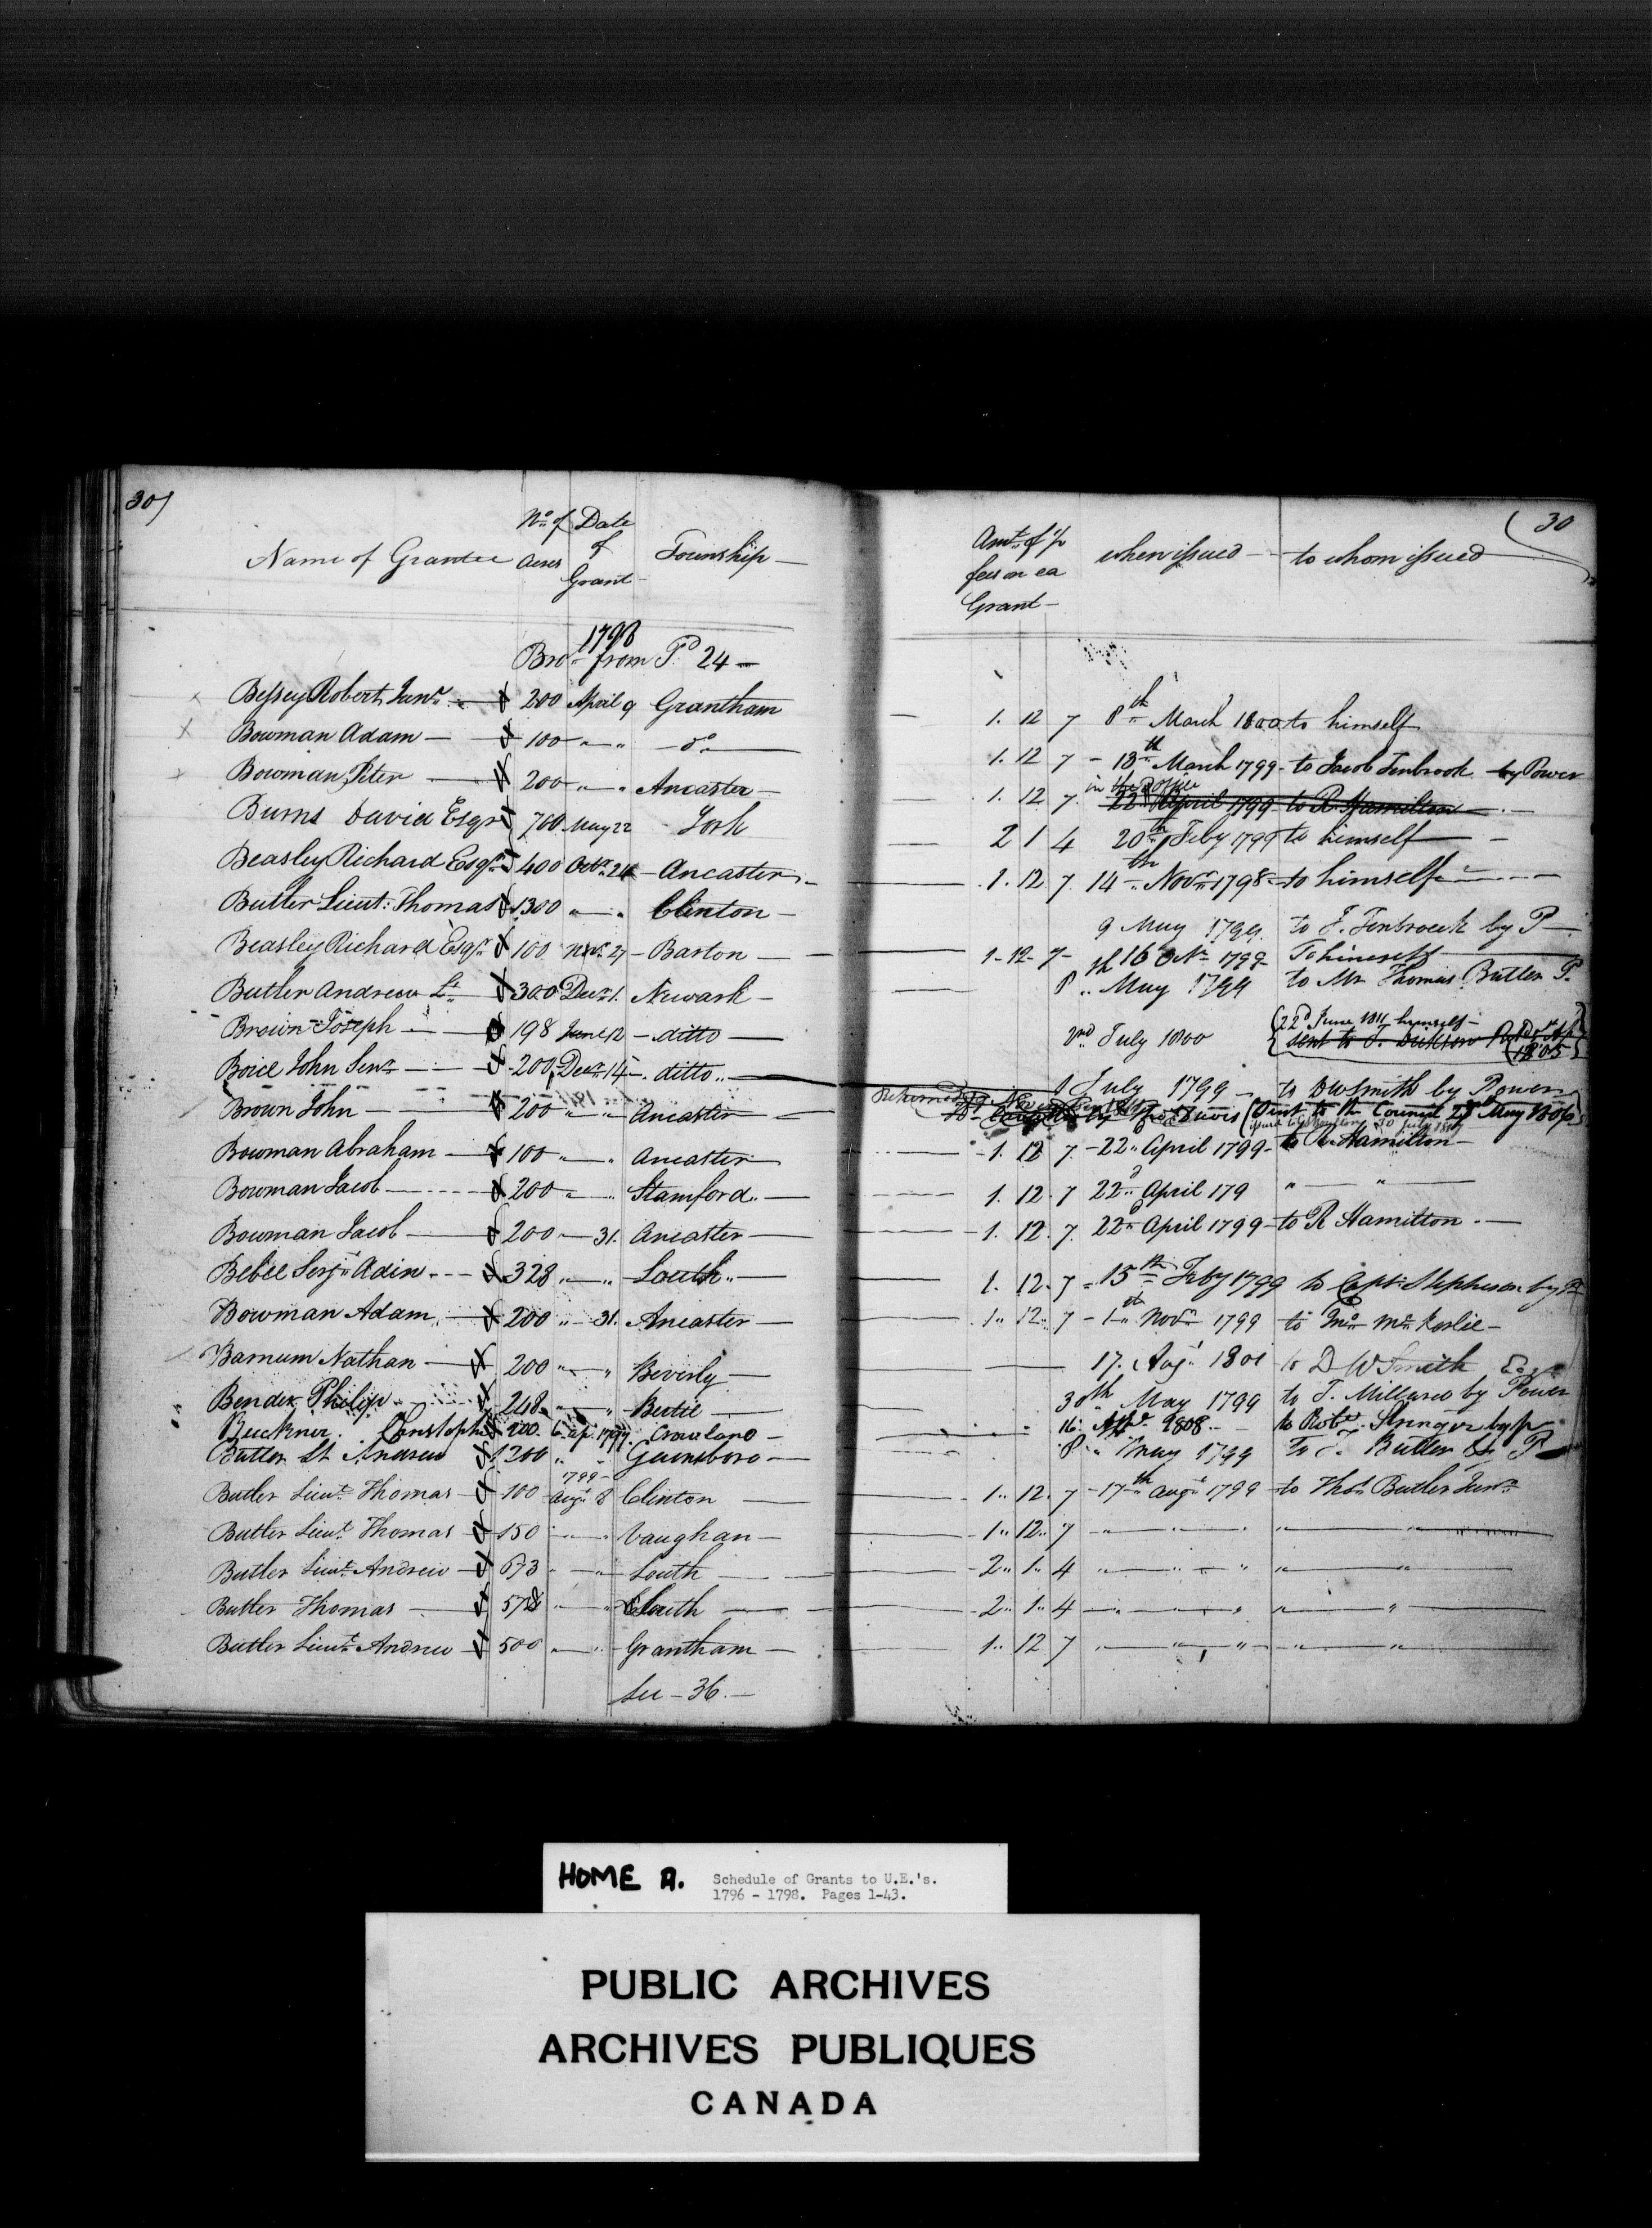 30)
Name of Grantee No. of Acres Date of Grant Township
Amt. of fees on ea Grant when issued to whom issued
30
1798
Bro. from P. 24
Bessey Robert Junr. 200 April 9 Grantham 1. 12 7 8th March 1800 to himself
Bowman Adam 100 " " do 1. 12 7 13th March 1799 to Jacob Tenbrook by Power
in the Office
Bowman Peter 200 " " Ancaster 1. 12 7 22d April 1799 to R. Hamilton
Burns David Esqr 700 May 22 York 2 1 4 20th Feby 1799 to himself
Beasley Richard Esqr. 400 Octr. 24 Ancaster 1. 12 7. 14th Novr. 1798 to himself
Butler Lieut. Thomas 1300 " " Clinton 9 May 1799. to J. Tenbroeck by P
Beasley Richard Esqr. 100 Novr. 27 Barton 1. 12 7 16 1799 To himself
Butler Andrew Lt. 300 Decr. 1. Newark 8th May 1799 to Mr Thomas Butler P.
Brown Joseph 198 June 12 ditto 2nd July 1800 22d June 1811 himself
sent to T. Dickson 1805
Boice John Senr. 200 Decr. 14 ditto July 1799 to DW Smith by Power
Returned
Brown John 200 " " Ancaster Davis (Sent to the Council 28 May 1806)
Bowman Abraham 100 " " Ancaster 1. 12 7. 22 April 1799 to R. Hamilton
Bowman Jacob 200 " " Stamford 1. 12. 7 22d April 179 " "
Bowman Jacob 200 31. Ancaster 1. 12. 7. 22d April 1799 to R Hamilton
Bebee Serjt. Adin 328 " " Louth 1. 12. 7 15th Feby 1799 to Capt. Stephenson by P
Bowman Adam 200 " 31. Ancaster 1.. 12.. 7 1st Novr. 1799 to
Barnum Nathan 200 " " Beverly 17. Augt. 1801 to D W Smith Esqr
Bender Philip 248 " " Bertie 30th May 1799 to T. Millard by Power
Buckner Christopher 200. 6 ap. 1797. Crowland 16. 1808 to Robt. Stringer by p
Butler Lt Andrew 1200 " " Gainsboro 8 May 1799 to T. Butler P
1799
Butler Lieut. Thomas 100 Augt. 8 Clinton 1.. 12. 7 17th Augt 1799 to Thos. Butler Junr.
Butler Lieut. Thomas 150 " " Vaughan 1.. 12.. 7 " " " "
Butler Lieut. Andrew 673 " " Louth 2.. 1.. 4 " " " "
Butler Thomas 578 " " Louth 2.. 1.. 4 " " " "
Butler Lieut. Andrew 500 " " Grantham 1.. 12 7 " " " "
See 36.
HOME A. Schedule of Grants to U.E.'s.
1796 - 1798. Pages 1-43.
PUBLIC ARCHIVES
ARCHIVES PUBLIQUES
CANADA